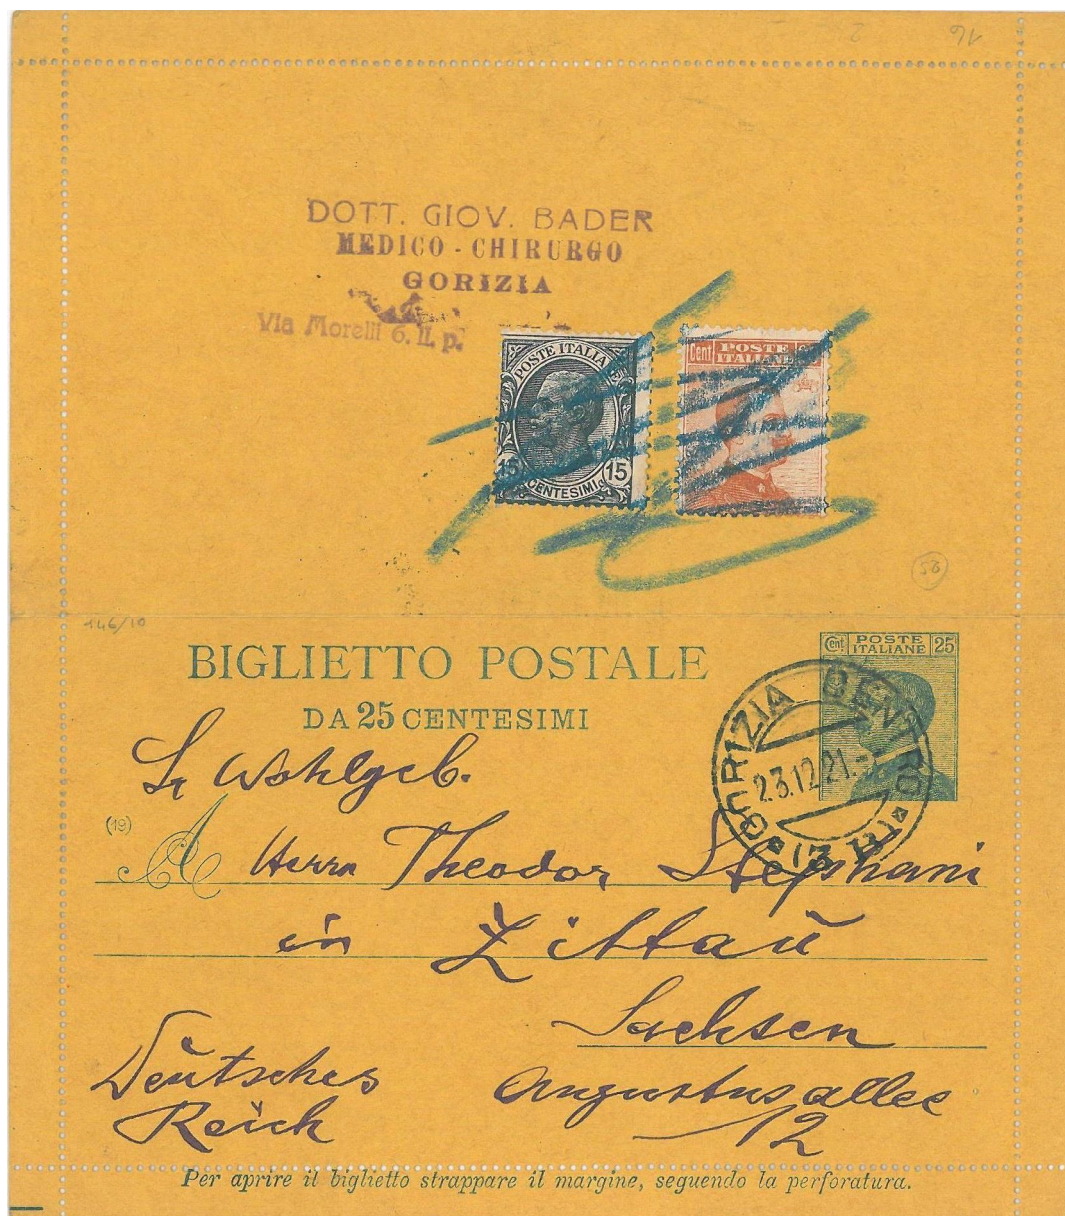 DOTT. GIOV. BADER
MEDICO - CHIRURGO
GORIZIA
Via Morelli 6. II. p.
POSTE ITALIANE
15 15
CENTESIMI
Cent POSTE
ITALIANE
52
146/10
BIGLIETTO POSTALE
DA 25 CENTESIMI
Cent POSTE 25
ITALIANE
GORIZIA CENTRO
23.12.21.
Sr Wohlgeb.
(19)
A Herrn Theodor Stephani
in Zittau
Sachsen
Deutsches
Reich
Augustusallee
12
Per aprire il biglietto strappare il margine, seguendo la perforatura.